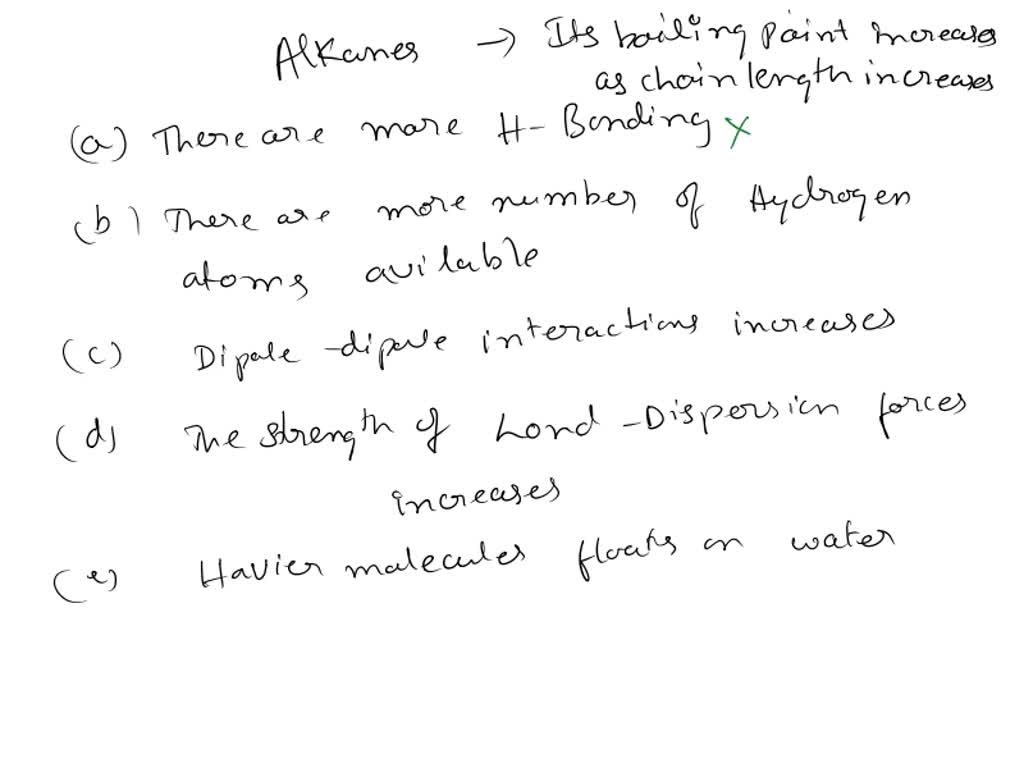 Alkanes → Its boiling point increases
as chain length increases
(a) There are more H-Bonding X
(b) There are more number of Hydrogen
atoms avilable
(c) Dipole-dipole interactions increases
(d) The strength of Lond-Dispersion forces
increases
(e) Havier molecules floats on water